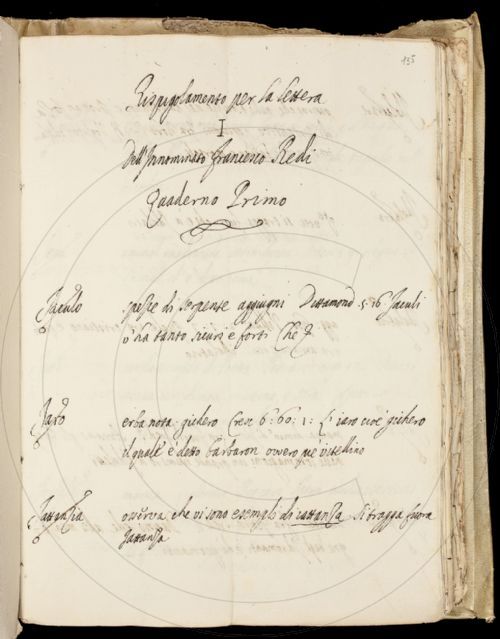 135
Rispigolamento per la lettera
I
Dell'Innominato Francesco Redi
Quaderno Primo
Jaculo spezie di serpente aggiugni Dittamond 5. 16. Jaculi
v'ha tanto sicuri e forti Che
Jaro erba nota. gichero Cresc 6: 60: 1: L'iaro cioè gichero
il quale è detto barbaron ovvero piè vitellino
Jattanzia osserva che vi sono esempli di iattanza Si tragga fuora
Jattanza